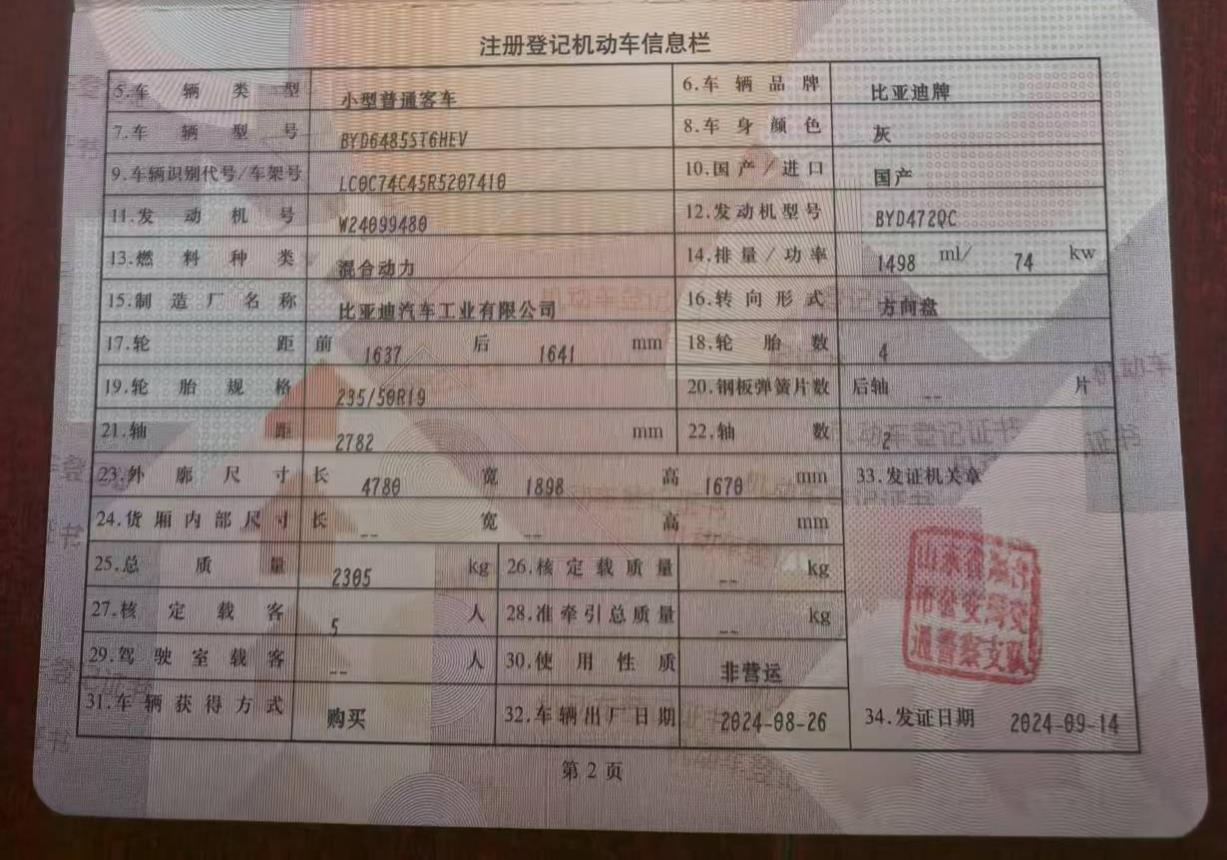 注册登记机动车信息栏
5.车辆类型 小型普通客车 6.车辆品牌 比亚迪牌
7.车辆型号 BYD6485ST6HEV 8.车身颜色 灰
9.车辆识别代号/车架号 LC0C74C45R5207410 10.国产/进口 国产
11.发动机号 W24099480 12.发动机型号 BYD472QC
13.燃料种类 混合动力 14.排量/功率 1498 ml/ 74 kw
15.制造厂名称 比亚迪汽车工业有限公司 16.转向形式 方向盘
17.轮距 前 1637 后 1641 mm 18.轮胎数 4
19.轮胎规格 235/50R19 20.钢板弹簧片数 后轴 -- 片
21.轴距 2782 mm 22.轴数 2
23.外廓尺寸 长 4780 宽 1898 高 1670 mm 33.发证机关章
24.货厢内部尺寸 长 -- 宽 -- 高 mm
25.总质量 2305 kg 26.核定载质量 -- kg
27.核定载客 5 人 28.准牵引总质量 -- kg
29.驾驶室载客 -- 人 30.使用性质 非营运
山东省
市公安局交
通警察支队
31.车辆获得方式 购买 32.车辆出厂日期 2024-08-26 34.发证日期 2024-09-14
第2页